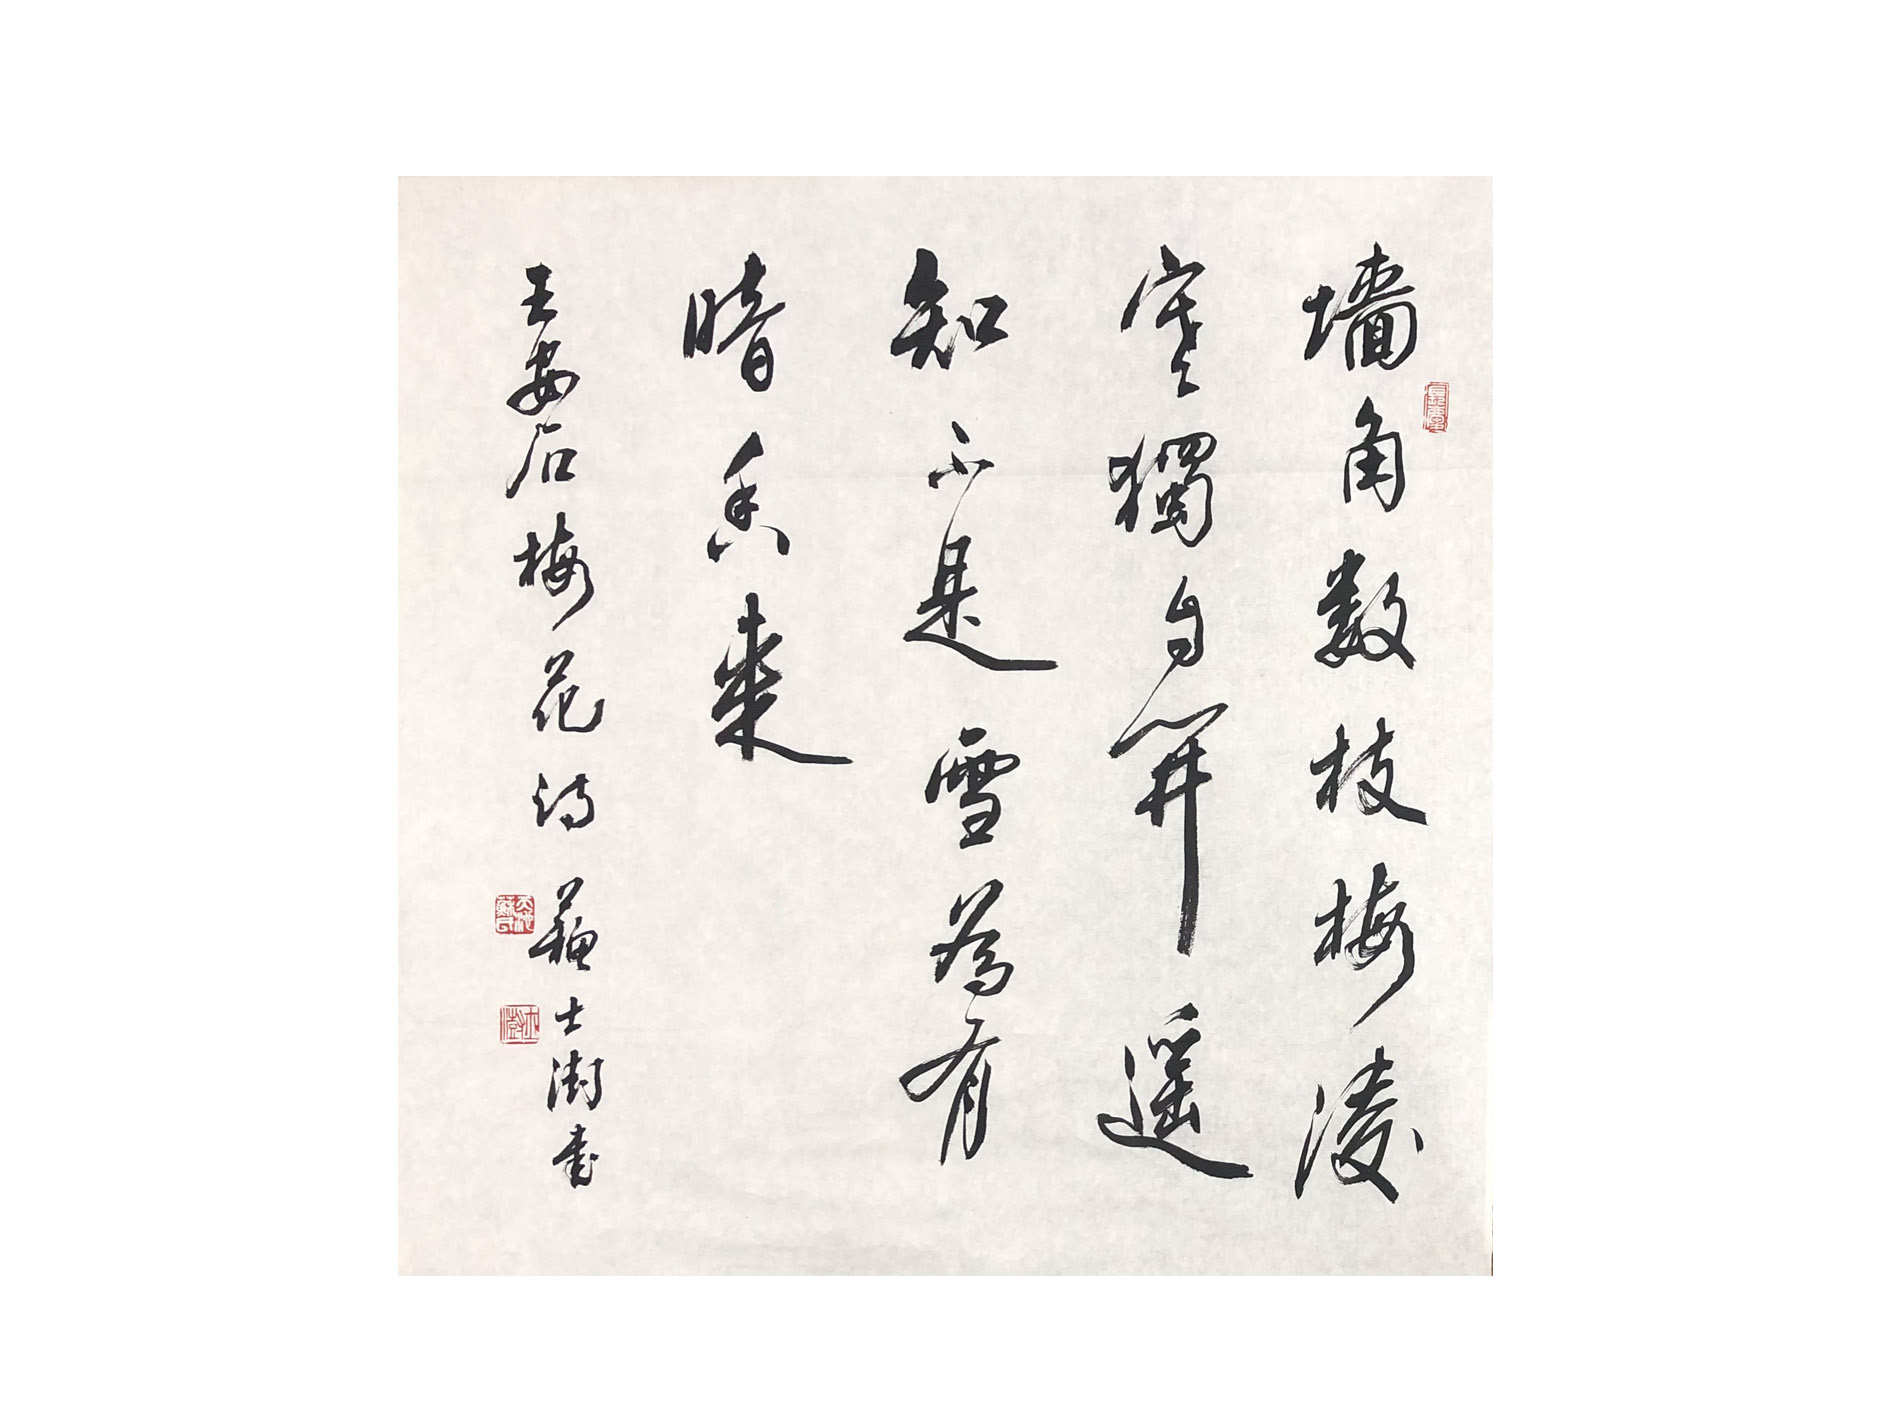 墙角数枝梅凌
寒獨自開遥
知不是雪為有
暗香來
王安石梅花詩 蘇士澍書